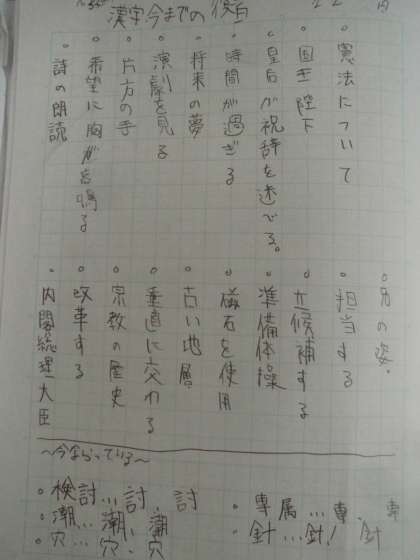 漢字今までの復習
・憲法について
・国王陛下
・皇后が祝辞を述べる。
・時間が過ぎる
・将来の夢
・演劇を見る
・片方の手
・希望に胸が高鳴る
・詩の朗読
・兄の姿.
・担当する
・立候補する
・準備体操
・磁石を使用
・古い地層
・垂直に交わる
・宗教の歴史
・改革する
・内閣総理大臣
〜今ならっている〜
・検討…討.討
・潮…潮.潮
・穴…穴.穴
・専属…専.専
・針…針!針